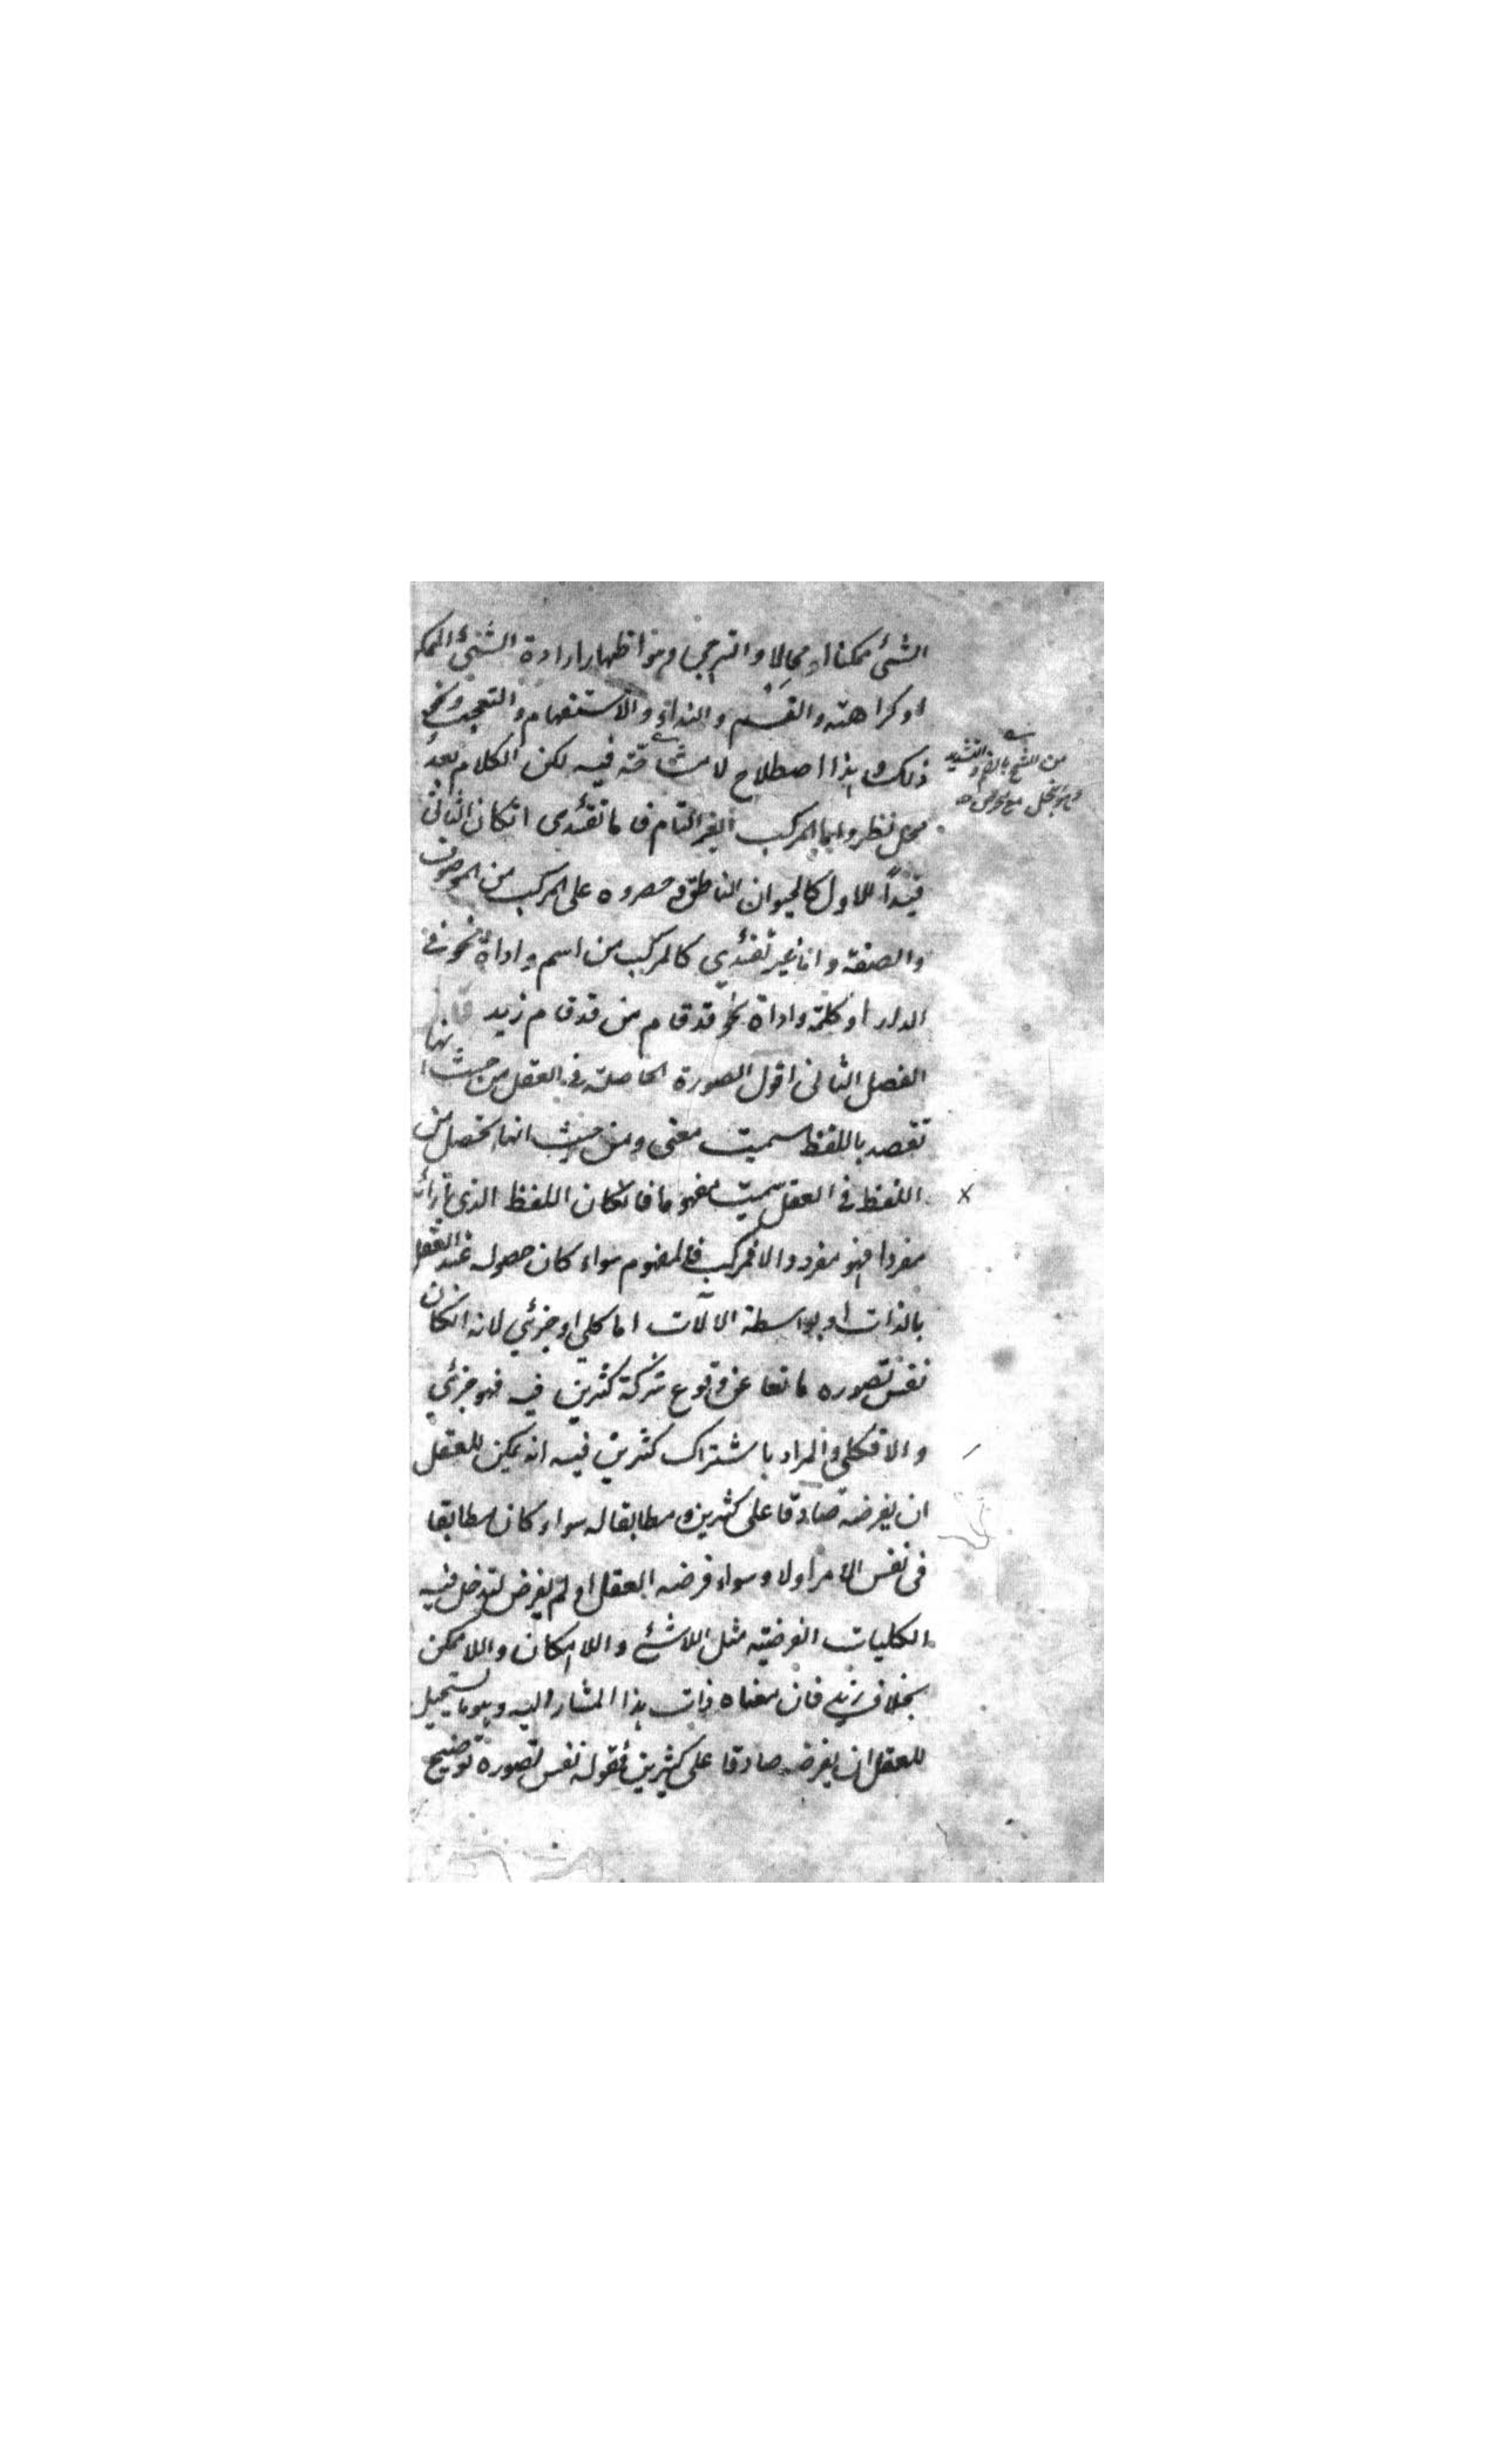 الشئ ممكنا او محالا والترجي وهو اظهار ارادة الشئ الممكن
او كراهته والقسم والنداء والاستفهام والتعجب ونحو
ذلك وهذا اصطلاح لا مشاحة فيه لكن الكلام بعد
محل نظر واما المركب الغير التام فاما تقئدى انكان الثانى
قيداً للاول كالحيوان الناطق وحصروه على المركب من الموصوف
والصفة واما غير تقئدي كالمركب من اسم واداة نحو فى
الدار او كلمة واداة نحو قد قام من قد قام زيد قال
الفصل الثانى اقول الصورة الحاصلة فى العقل من حيث انها
تقصد باللفظ سميت معنى ومن حيث انها تحصل من
اللفظ فى العقل سميت مفهوما فانكان اللفظ الذى بازائه
مفردا فهو مفرد والا فمركب فالمفهوم سواء كان حصوله عند العقل
بالذات او بواسطة الآلات اما كلي او جزئي لانه انكان
نفس تصوره مانعا عن وقوع شركة كثيرين فيه فهو جزئي
والا فكلى والمراد باشتراك كثيرين فيه انه يمكن للعقل
ان يفرضه صادقا على كثيرين ومطابقا له سواء كان مطابقا
فى نفس الامر اولا وسواء فرضه العقل او لم يفرض لتدخل فيه
الكليات الفرضية مثل اللاشئ واللاامكان واللاممكن
بخلاف زيد فان معناه ذات هذا المشار اليه وهو ما يستحيل
للعقل ان يفرضه صادقا على كثيرين فقوله نفس تصوره توضيح
من الشح بالضم والتشديد
وهو البخل مع الحرص